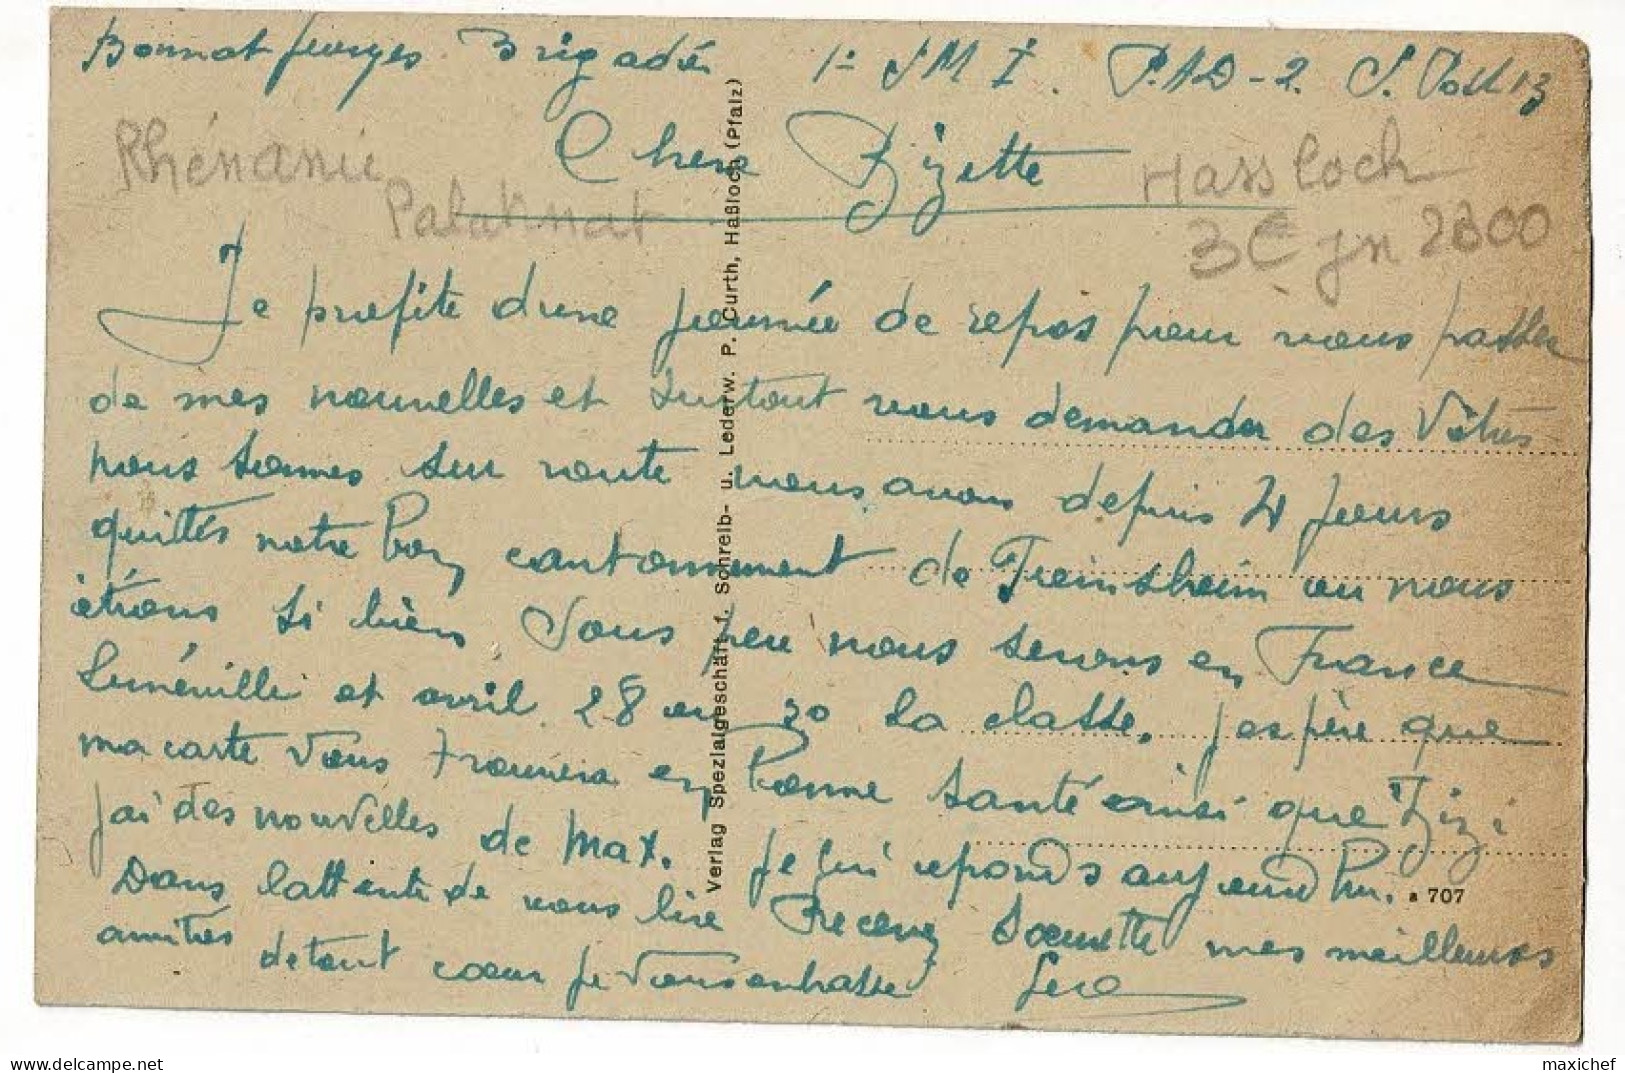 Bonnat Georges Brigadier 1º P.A.D-2. S. Post 13
Rhénanie
Palatinat
Chere Zizette
Hassloch
3€ jn 2300
Je profite d'une journée de repos pour vous passer
de mes nouvelles et surtout vous demander des Vôtres
nous sommes sur route nous avons depuis 4 jours
quittés notre bon cantonnement de Freinsheim ou nous
étions si bien Sous peu nous serons en France
Lunéville et avril 28 ou 30 la classe. j'espère que
ma carte Vous trouvera en bonne santé ainsi que Zizi
j'ai des nouvelles de Max. je lui reponds aujourd'hui.
Dans l'attente de vous lire Recevez Soeurette mes meilleures
amitiés de tout coeur je Vous embrasse
Verlag Spezialgeschäft f. Schreib- u. Lederw. P. Curth, Haßloch (Pfalz)
a 707
https://www.delcampe.net
maxichef